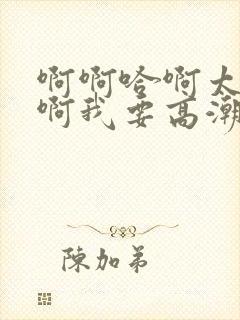 啊啊哈啊太
啊我要高潮
陳加弟